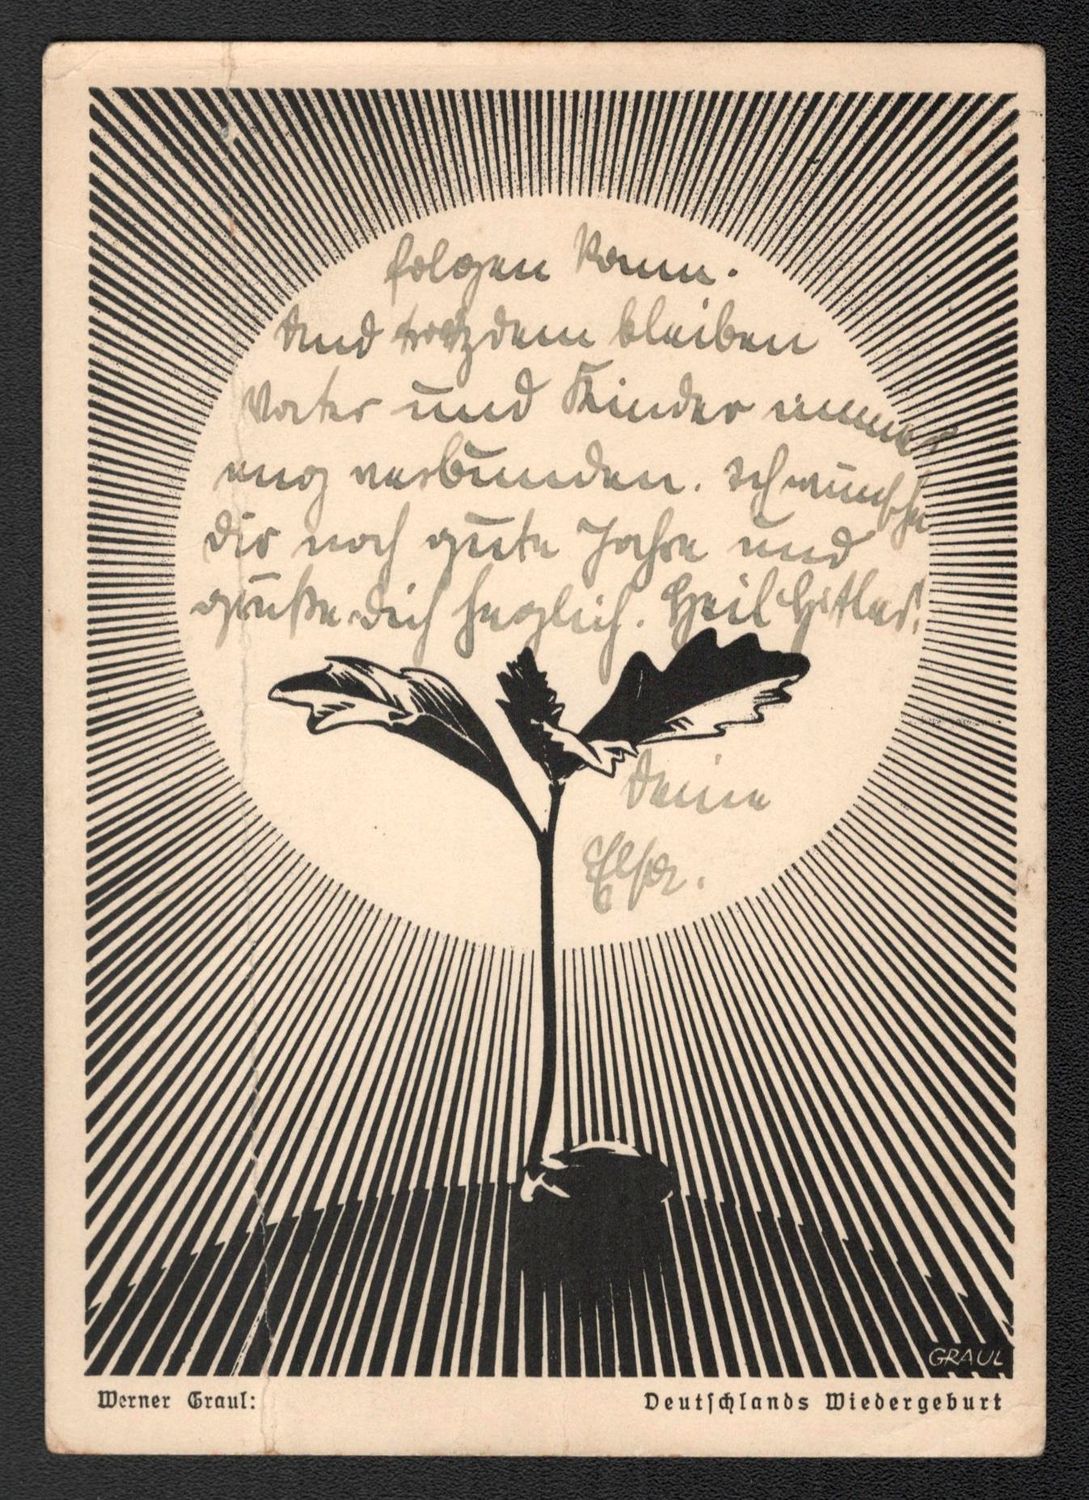 folgen kann.
Und trotzdem bleiben
Vater und Kinder immer
eng verbunden. Ich wünsche
dir noch gute Jahre und
grüße dich herzlich. Heil Hitler!
Deine
Else.
GRAUL
Werner Graul:
Deutſchlands Wiedergeburt